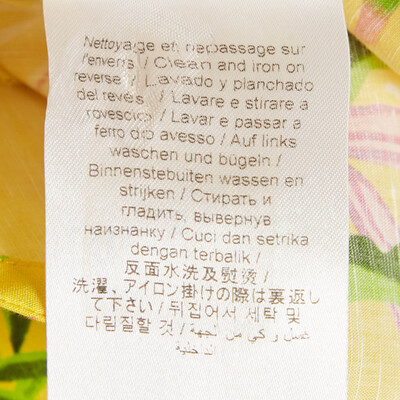 Nettoyage et repassage sur
l'envers / Clean and iron on
reverse / Lavado y planchado
del revés / Lavare e stirare a
rovescio / Lavar e passar a
ferro do avesso / Auf links
waschen und bügeln /
Binnenstebuiten wassen en
strijken / Стирать и
гладить, вывернув
наизнанку / Cuci dan setrika
dengan terbalik /
反面水洗及熨烫 /
洗濯、アイロン掛けの際は裏返し
て下さい / 뒤집어서 세탁 및
다림질할 것 / غسل و كي من الجهة
الداخلية